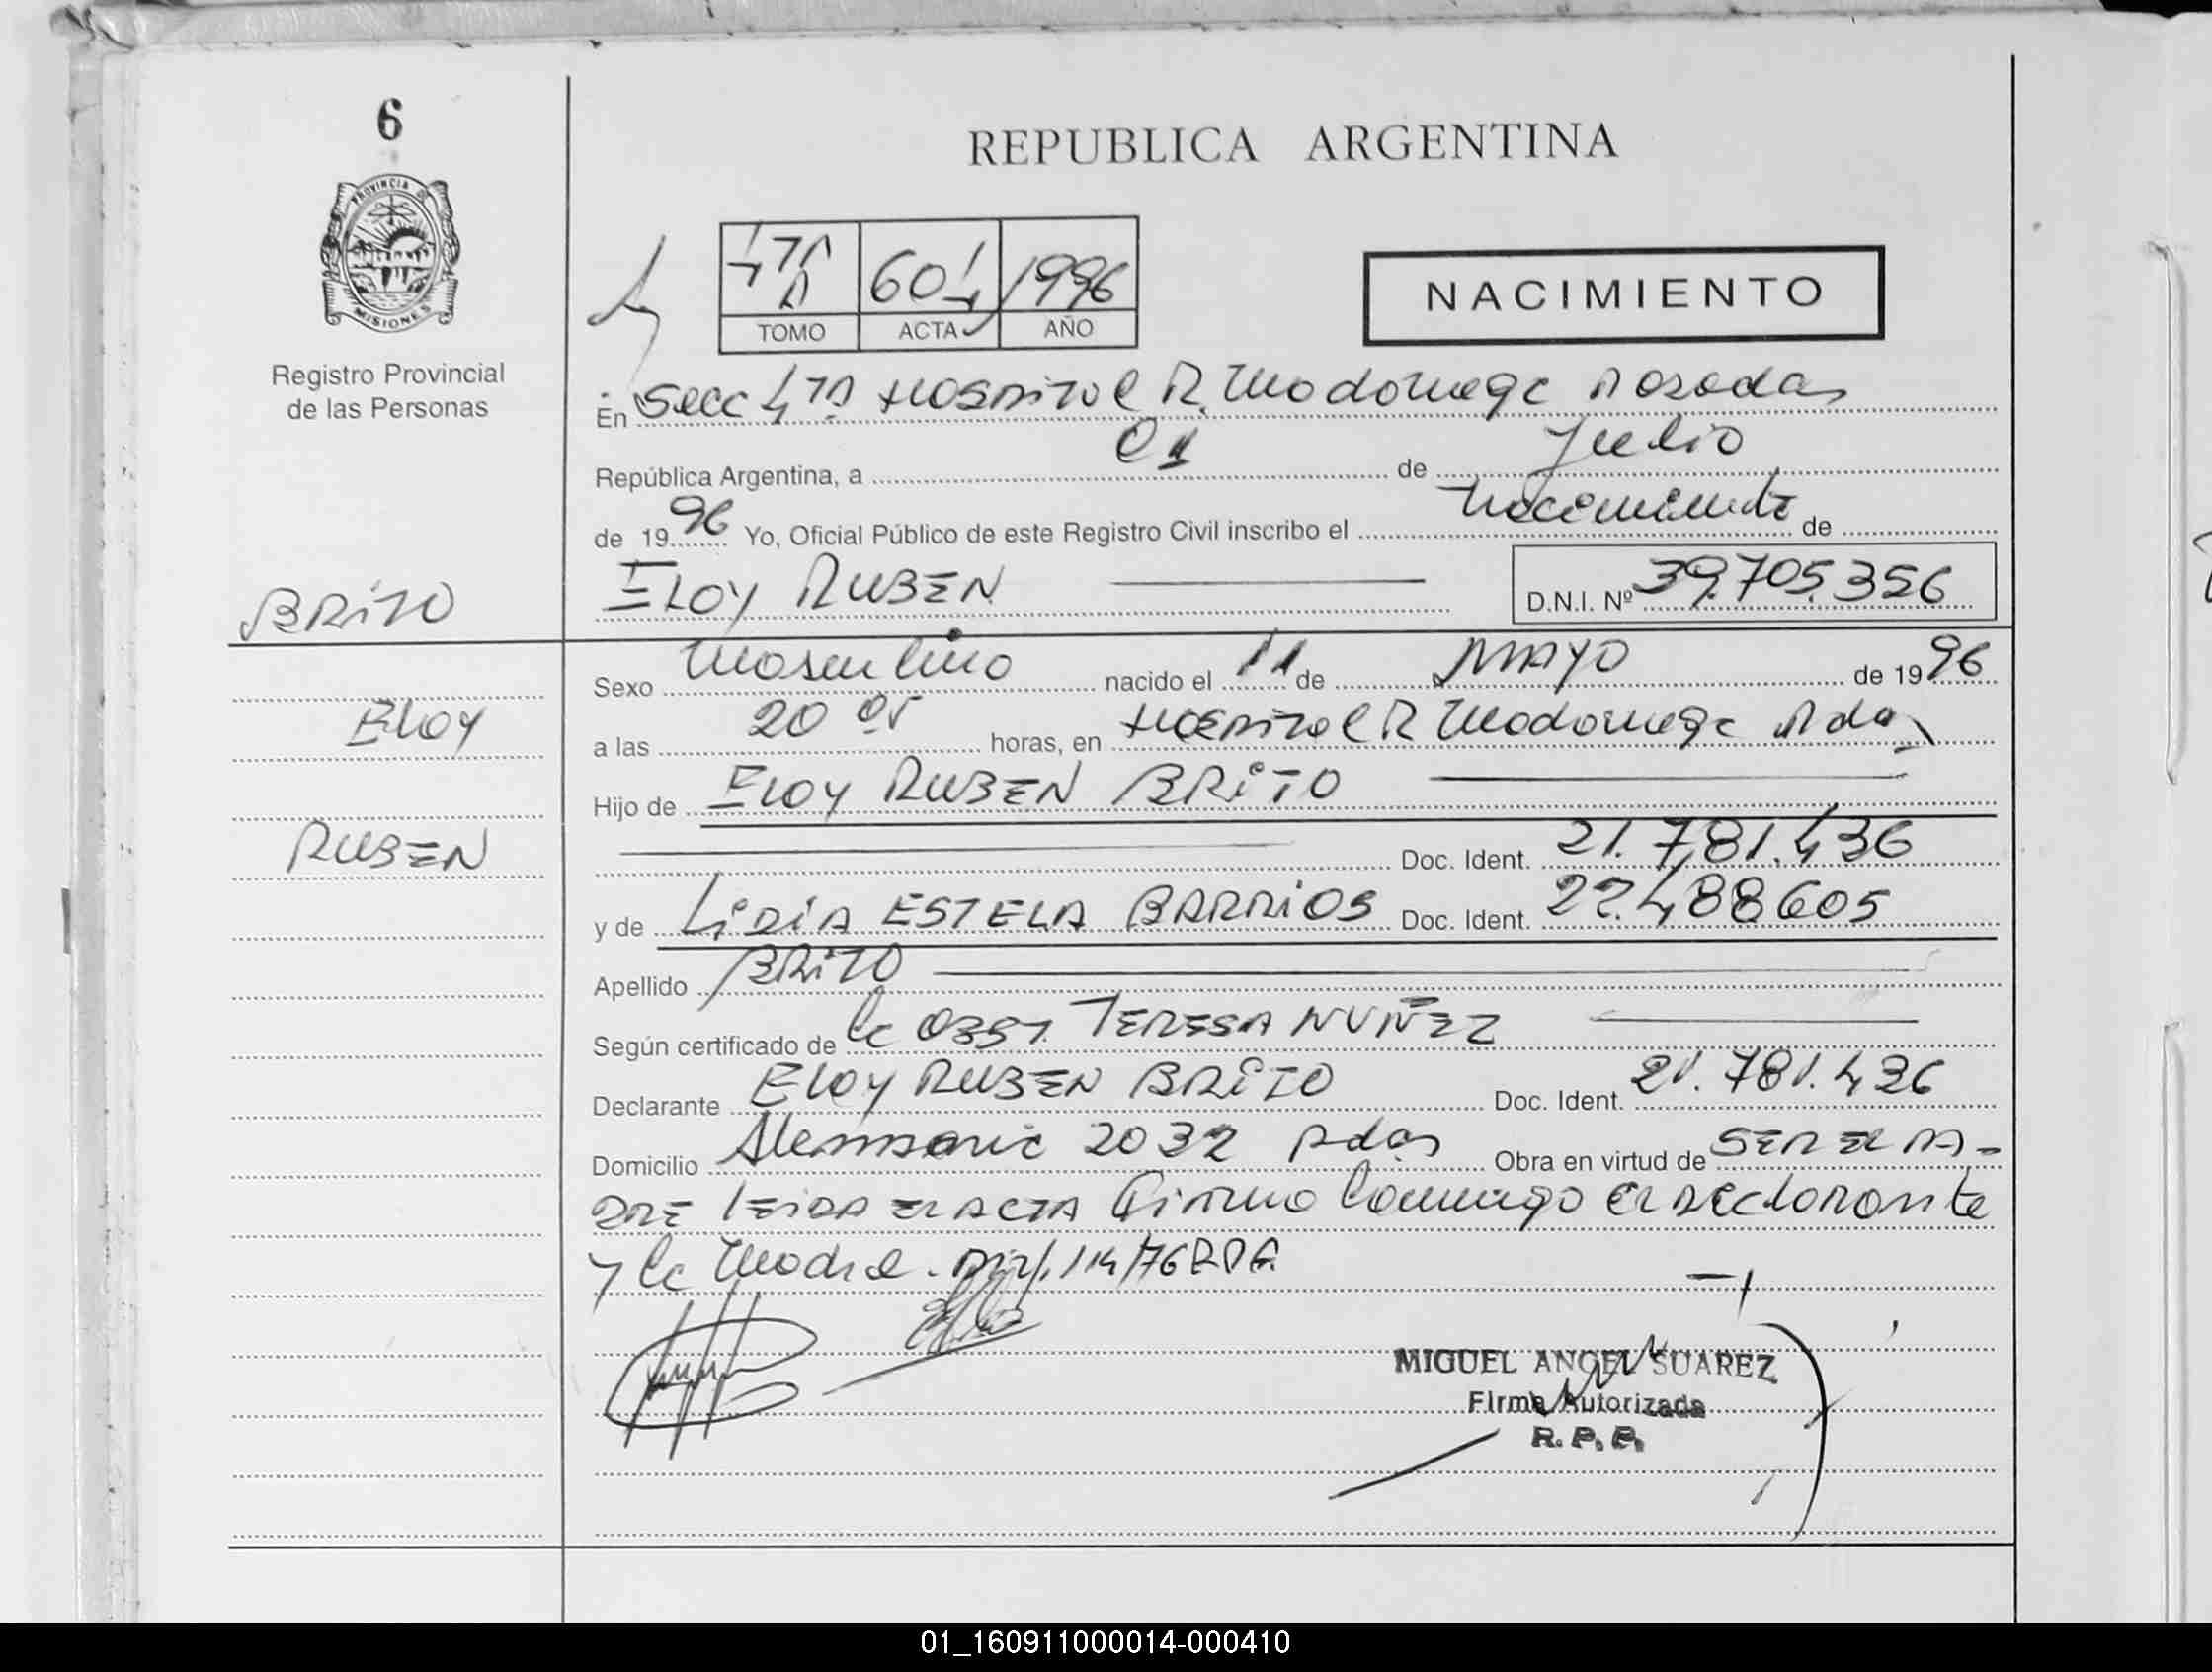 6
REPUBLICA ARGENTINA
PROVINCIA DE
MISIONES
4TA 604 1996
TOMO ACTA AÑO
NACIMIENTO
Registro Provincial
de las Personas
En Secc 4TA Hospital R. Madariaga Posadas
República Argentina, a 01 de Julio
de 1996 Yo, Oficial Público de este Registro Civil inscribo el nacimiento de
BRITO
ELOY RUBEN D.N.I. Nº 39.705.356
Sexo Masculino nacido el 11 de MAYO de 1996
ELOY
a las 20 05 horas, en Hospital R Madariaga Pdas
Hijo de ELOY RUBEN BRITO
RUBEN
Doc. Ident. 21.781.436
y de LIDIA ESTELA BARRIOS Doc. Ident. 22.488605
Apellido BRITO
Según certificado de la Obst. TERESA NUÑEZ
Declarante ELOY RUBEN BRITO Doc. Ident. 21.781.436
Domicilio Alemania 2032 Pdas Obra en virtud de SER EL PA-
DRE LEIDA EL ACTA Firma Conmigo el declarante
y la Madre. 114/76
MIGUEL ANGEL SUAREZ
Firma Autorizada
R. P. P.
01_160911000014-000410